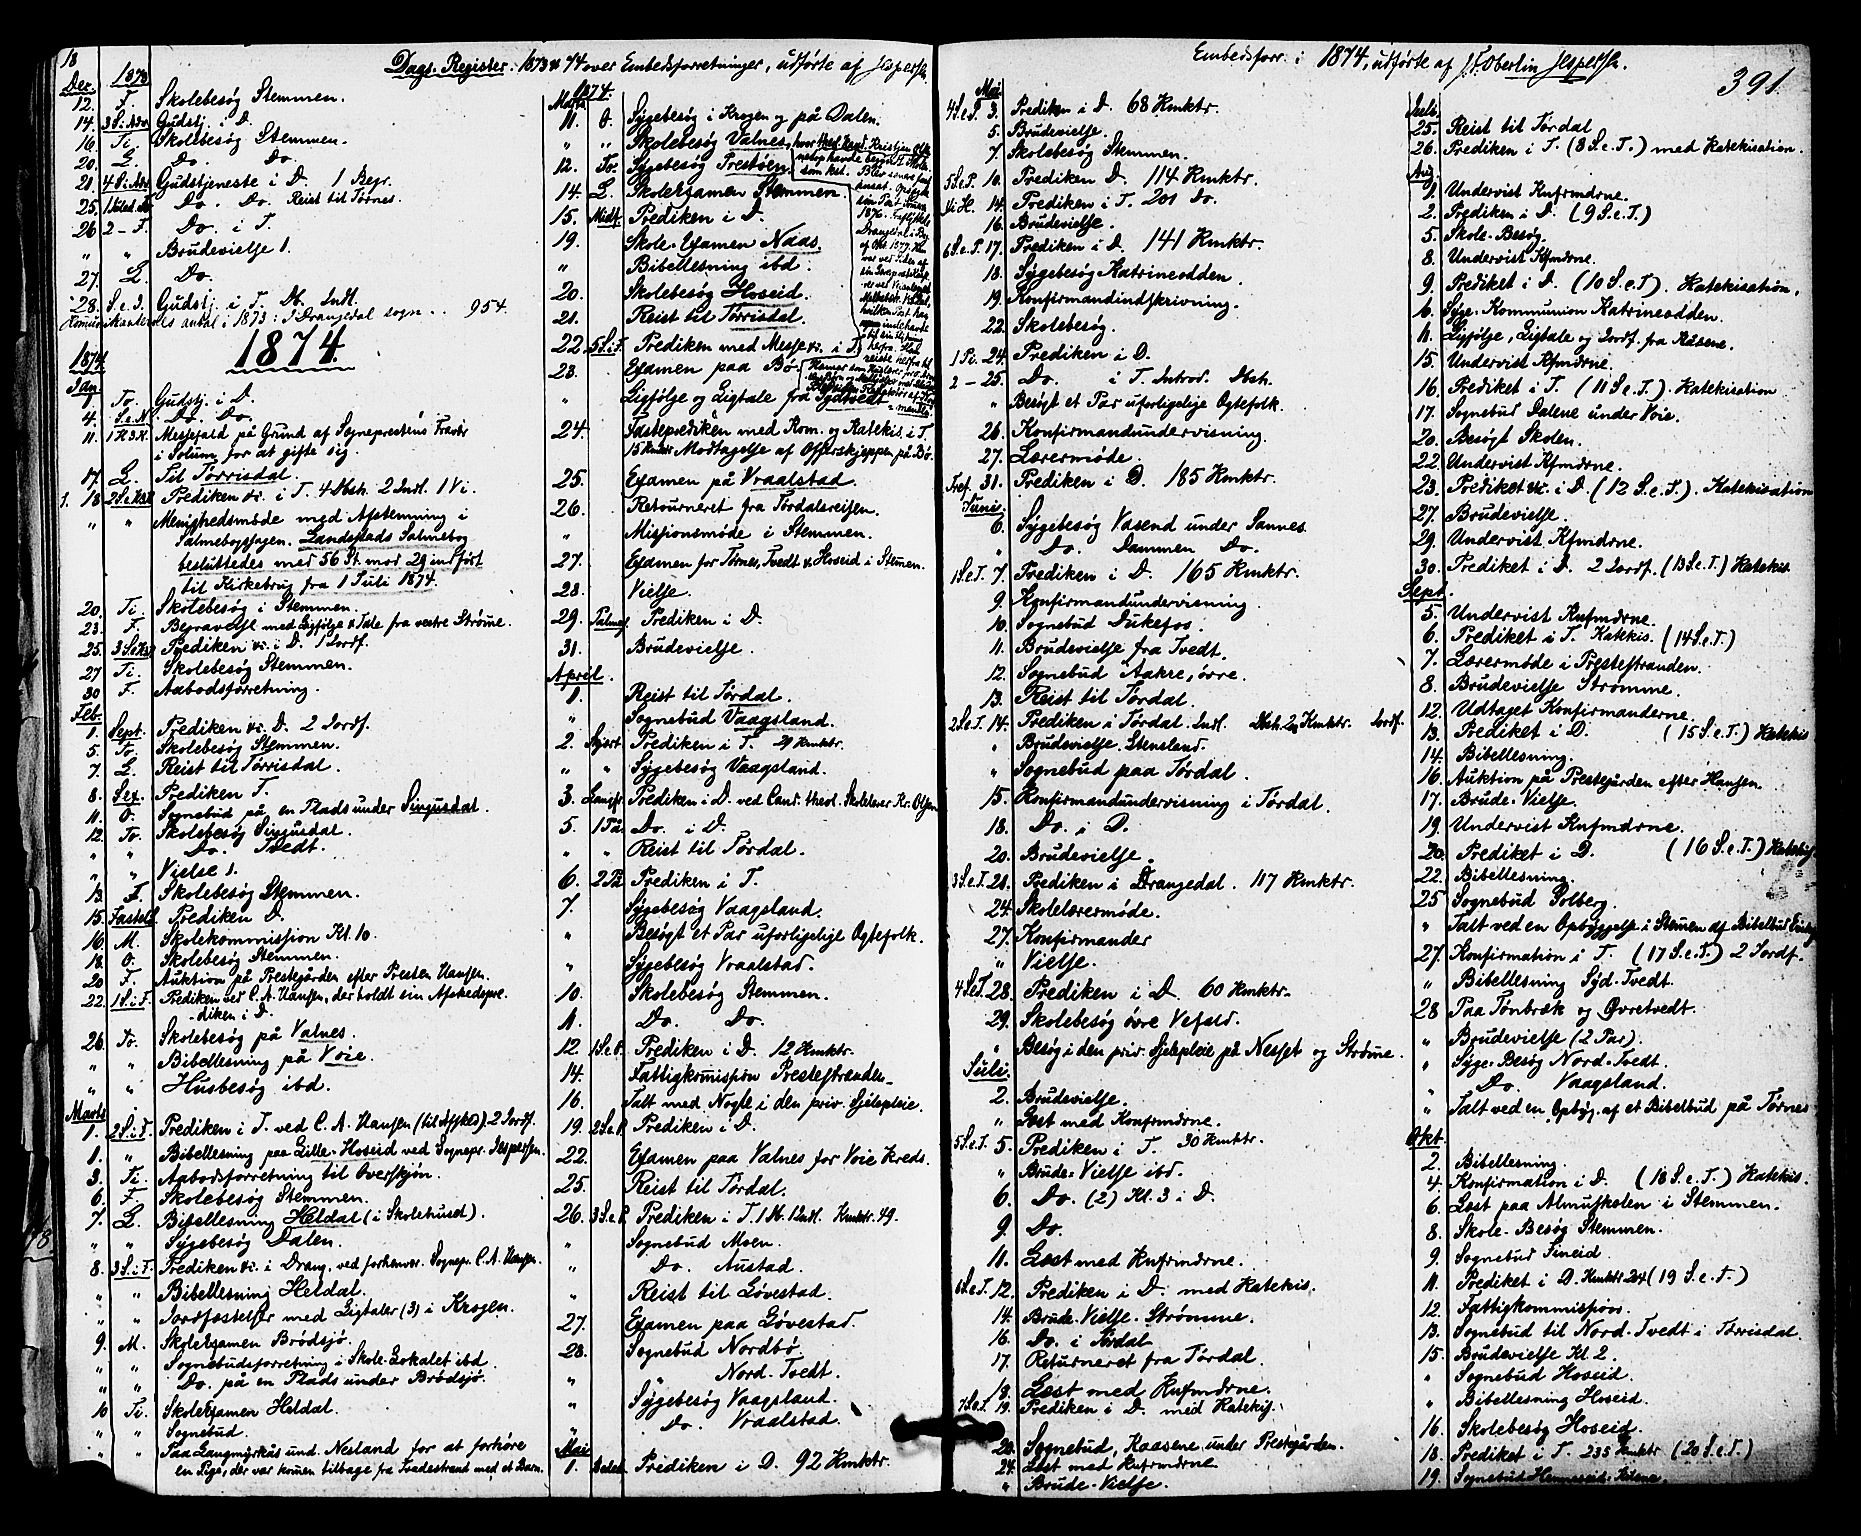 18
Dags-Register: 1873 & 74 over Embedsforretninger, udførte af Jespersen.
Dec. 1873
12. F. Skolebesøg Stemmen.
14. 3 S. i Adv. Gudstj. i D.
16. Ti. Skolebesøg Stemmen.
20. L. Do. Do.
21. 4 S. i Adv. Gudstjeneste i D. 1 Begr.
25. 1 Juled. Do. Do. Reist til Tørnes.
26 2 - J. Do. i T.
" " Brudevielse 1.
27. L. Do.
28. S. e. J. Gudstj. i T. Db. Indl.
Komunikanternes antal i 1873: I Drangedal sogn .. 954.
1874
1874
Jan.
1 To. Gudstj. i D.
4. S. e. N. Do. Do.
11. 1 S. e. H. 3 K. Messefald på Grund af Sogneprestens Fravær
i Solum for at gifte sig.
17. L. Til Tørrisdal.
1. 18 2 S. e. H3K Prediken &c. i T. 4 Dbh. 2 Indl. 1 Vi.
" " Menighedsmøde med Afstemning i
Salmebogssagen. Landstads Salmebog
besluttedes med 56 St. mod 29 indført
til Kirkebrug fra 1 Juli 1874.
20. Ti. Skolebesøg i Stemmen.
23. F. Begravelse med Ligfølge & Tale fra vestre Strøme.
25. 3 S. e. H3K Prediken &c. i D. 1 Jordf.
27 Ti. Skolebesøg Stemmen.
30 F. Aabodsforretning.
Feb.
1. Sept. Prediken &c. D. 2 Jordf.
5. To. Skolebesøg Stemmen.
7. L. Reist til Tørrisdal.
8. Sex. Prediken T.
11. O. Sognebud på en Plads under Singusdal.
12. To. Skolebesøg Singusdal.
" " Do. Tvedt.
" " Vielse 1.
13. F. Skolebesøg Stemmen.
15. Fastel. Prediken D.
16. M. Skolekommission Kl. 10.
18. O. Skolebesøg Stemmen.
20 F. Auktion på Prestegården efter Presten Hansen.
22. 1 S. i F. Prediken ved C. A. Hansen, der holdt sin Afskedspre-
diken i D.
26. To. Skolebesøg på Valnes.
" " Bibellesning på Voie.
" " Husbesøg ibd.
Marts
1. 2 S. i F. Prediken i T. ved C. A. Hansen (til Afsked). 2 Jordf.
1. " Bibellesning paa Lille-Hoseid ved Sognepr. Jespersen.
3. Ti. Aabodsforretning til Overskjøn.
6. F. Skolebesøg Stemmen.
7. L. Bibellesning Heldal (i Skolehuset).
" " Sygebesøg Dalen.
8. 3 S. i F. Prediken &c. i Drang. ved forhenvær. Sognepr. C. A. Hansen.
" " Bibellesning Heldal.
" " Jordfæstelser med Ligtaler (3) i Krogen.
9. M. Skoleexamen Brødsjø.
" " Sognebudsforretning i Skole-Lokalet ibd.
" " Do. på en Plads under Brødsjø.
10 Ti. Skoleexamen Heldal.
" " Sognebud.
" " Paa Langmyrkås und. Nesland for at forhøre
en Pige, der var komen tilbage fra Tvedestrand med et Barn.
Marts 1874.
11. O. Sygebesøg i Krogen og på Dalen.
" " Skolebesøg Valnes,
12. To. Sygebesøg Prestøen.
14. L. Skoleexamen Stemmen.
15. Midf. Prediken i D.
19. Skole-Examen Naas.
" Bibellesning ibd.
20. Skolebesøg Hoseid.
21. Reist til Tørrisdal.
22 5 S. i F. Prediken med Messe &c. i T.
23. Examen paa Bø.
" Ligfølge og Ligtale fra Sydtvedt
24. Fasteprediken med Kom. og Katekis. i T.
15 Kmktr. Modtagelse af Offerskjeppen på Bø.
25. Examen på Vraalstad.
26. Retourneret fra Tørdalsreisen.
" Missionsmøde i Stemmen.
27. Examen for Tørnes, Tvedt & Hoseid i Stemen.
28. Vielse.
29. Palmes. Prediken i D.
31. Brudevielse.
April.
1. Reist til Tørdal.
" Sognebud Vaagsland.
2. Skjert. Prediken i T. 29 Kmktr.
" " Sygebesøg Vaagsland.
3. Langfr. Prediken i D. ved Cand. theol. Skolelærer Kr. Olsen
5. 1 På. Do. i D.
" " Reist til Tørdal.
6. 2 På Prediken i T.
7. Sygebesøg Vaagsland.
" Besøgt et Par uforligelige Ogtefolk.
" Sygebesøg Vraalstad.
10. Skolebesøg Stemmen.
11. Do. Do.
12. 1 S. e. P. Prediken i D. 12 Kmktr.
14. Fattigkomission Prestestranden.
16. Talt med Nogle i den priv. Sjælepleie.
19. 2 S. e. P. Prediken i D.
22. Examen paa Valnes for Voie Kreds.
25. Reist til Tørdal.
26. 3 S. e. P. Prediken i T. 1 Db. 1 Indl. Kmktr. 49.
" Sognebud Moen.
" Do. Austad.
" Reist til Gøvestad.
27. Examen paa Gøvestad.
28. Sognebud Nordbø.
" " Nord-Tvedt.
" Sygebesøg Vaagsland.
" Do. Vraalstad.
Mai
1. Beded. Prediken i D. 92 Kmktr.
Embedsforr. i 1874, udførte af J. F. Oberlin Jespersen.
391
Mai
4 S. e. P. 3. Prediken i D. 68 Kmktr.
5. Brudevielse.
7. Skolebesøg Stemmen.
5 S. e. P. 10. Prediken D. 114 Kmktr.
Kr. H. 14. Prediken i T. 201 Do.
16. Brudevielse.
6 S. e. P. 17. Prediken i D. 141 Kmktr.
18. Sygebesøg Katrineodden.
19. Konfirmandindskrivning.
22. Skolebesøg.
1 Pi. 24. Prediken i D.
2 - 25. Do. i T. Introd. Dbh.
" Besøgt et Par uforligelige Ogtefolk.
26. Konfirmandundervisning.
27. Lærermøde.
Tref. 31. Prediken i D. 185 Kmktr.
Juni.
6. Sygebesøg Vasend under Sannes.
" Do. Dammen Do.
1 S. e. T. 7. Prediken i D. 165 Kmktr.
9. Konfirmandundervisning.
10. Sognebud Dukefos.
11. Brudevielse fra Tvedt.
12. Sognebud Aakre, øvre.
13. Reist til Tørdal.
2 S. e. T. 14. Prediken i Tørdal. Indl. Dbh. 2, Kmktr. Jordf.
" Brudevielse Stensland.
" Sognebud paa Tørdal.
15. Konfirmandundervisning i Tørdal.
18. Do. i D.
20. Brudevielse.
3 S. e. T. 21. Prediken i Drangedal. 117 Kmktr.
24. Skolelærermøde.
27. Konfirmander
" Vielse.
4 S. e. T. 28. Prediken i D. 60 Kmktr.
29. Skolebesøg øvre Vefald.
" Besøg i den priv. Sjelepleie på Nesset og Strøme.
Juli.
2. Brudevielse.
" Lest med Konfmdrne.
5 S. e. T. 5. Prediken i T. 30 Kmktr.
" Brude-Vielse ibd.
6. Do. (2) Kl. 3 i D.
9. Do.
11. Lest med Knfrmdrne.
6 S. e. T. 12. Prediken i D. med Katekis.
14. Brude-Vielse Strømme.
16. Do. i Tørdal
17. Returneret fra Tørdal.
18. Læst med Knfmdrne.
7 S. e. T. 19. Prediken i D. med Katekis.
20. Sognebud, Kaasene under Prestegården.
24. Lest med Knfrmdrne
" Brude-Vielse.
Juli.
25. Reist til Tørdal
26. Prediken i T. (8 S. e. T.) med Katekisation.
Aug.
1. Undervist Knfrmdrne.
2. Prediken i D. (9 S. e. T.)
5. Skole-Besøg.
8. Undervist Kfmdrne.
9. Prediket i D. (10 S. e. T). Katekisation.
6. Syge-Kommunion Katrineodden.
11. Ligfølge, Ligtale og Jordf. fra Kåsene.
15. Undervist Kfmdrne.
16. Prediket i T. (11 S. e. T.). Katekisation
17. Sognebud Dalene under Voie.
20. Besøgt Skolen.
22. Undervist Kfmdrne.
23. Prediket &c. i D. (12 S. e. T.). Katekisation
27. Brudevielse.
29. Undervist Kfmdrne.
30. Prediket i D. 2 Jordf. (13 S. e. T.) Katekis.
Sept.
5. Undervist Knfmdrne.
6. Prediket i T. Katekis. (14 S. e. T.)
7. Lærermøde i Prestestranden.
8. Brudevielse Strømme.
12. Udtaget Konfirmanderne.
13. Prediket i D. (15 S. e. T.) Katekis
14. Bibellesning.
16. Auktion på Prestegården efter Hansen.
17. Brude-Vielse.
19. Undervist Knfmdrne.
20. Prediket i D. (16 S. e. T.) Katekis.
22. Bibellesning.
25 Sognebud Solberg.
" Talt ved en Opbyggelse i Stemen af Bibelbud
27. Konfirmation i T. (17 S. e. T.) 2 Jordf.
" Bibellesning Syd-Tvedt.
28 Paa Tønbræk og Øvretvedt.
" Brudevielse (2 Par).
" Syge-Besøg Nord-Tvedt.
" Do. Vaagsland.
" Talt ved en Opbyg. af et Bibelbud på Tørnes
Okt.
2. Bibellesning.
4. Konfirmation i D. (18 S. e. T.) Katekis.
6. Lest paa Almuskolen i Stemmen.
8. Skole-Besøg Stemmen.
9. Sognebud Fineid.
11. Prediket i D. Kmktr 204 (19 S. e. T.)
12. Fattigkommission.
13. Sognebud til Nord-Tvedt i Tørrisdal.
15. Brudevielse Kl. 2.
" Sognebud Hoseid.
" Bibellesning Hoseid.
16. Skolebesøg Hoseid.
18. Prediket i T. 235 Kmktr (20 S. e. T.)
19. Sognebud Henneseid-Kilene.